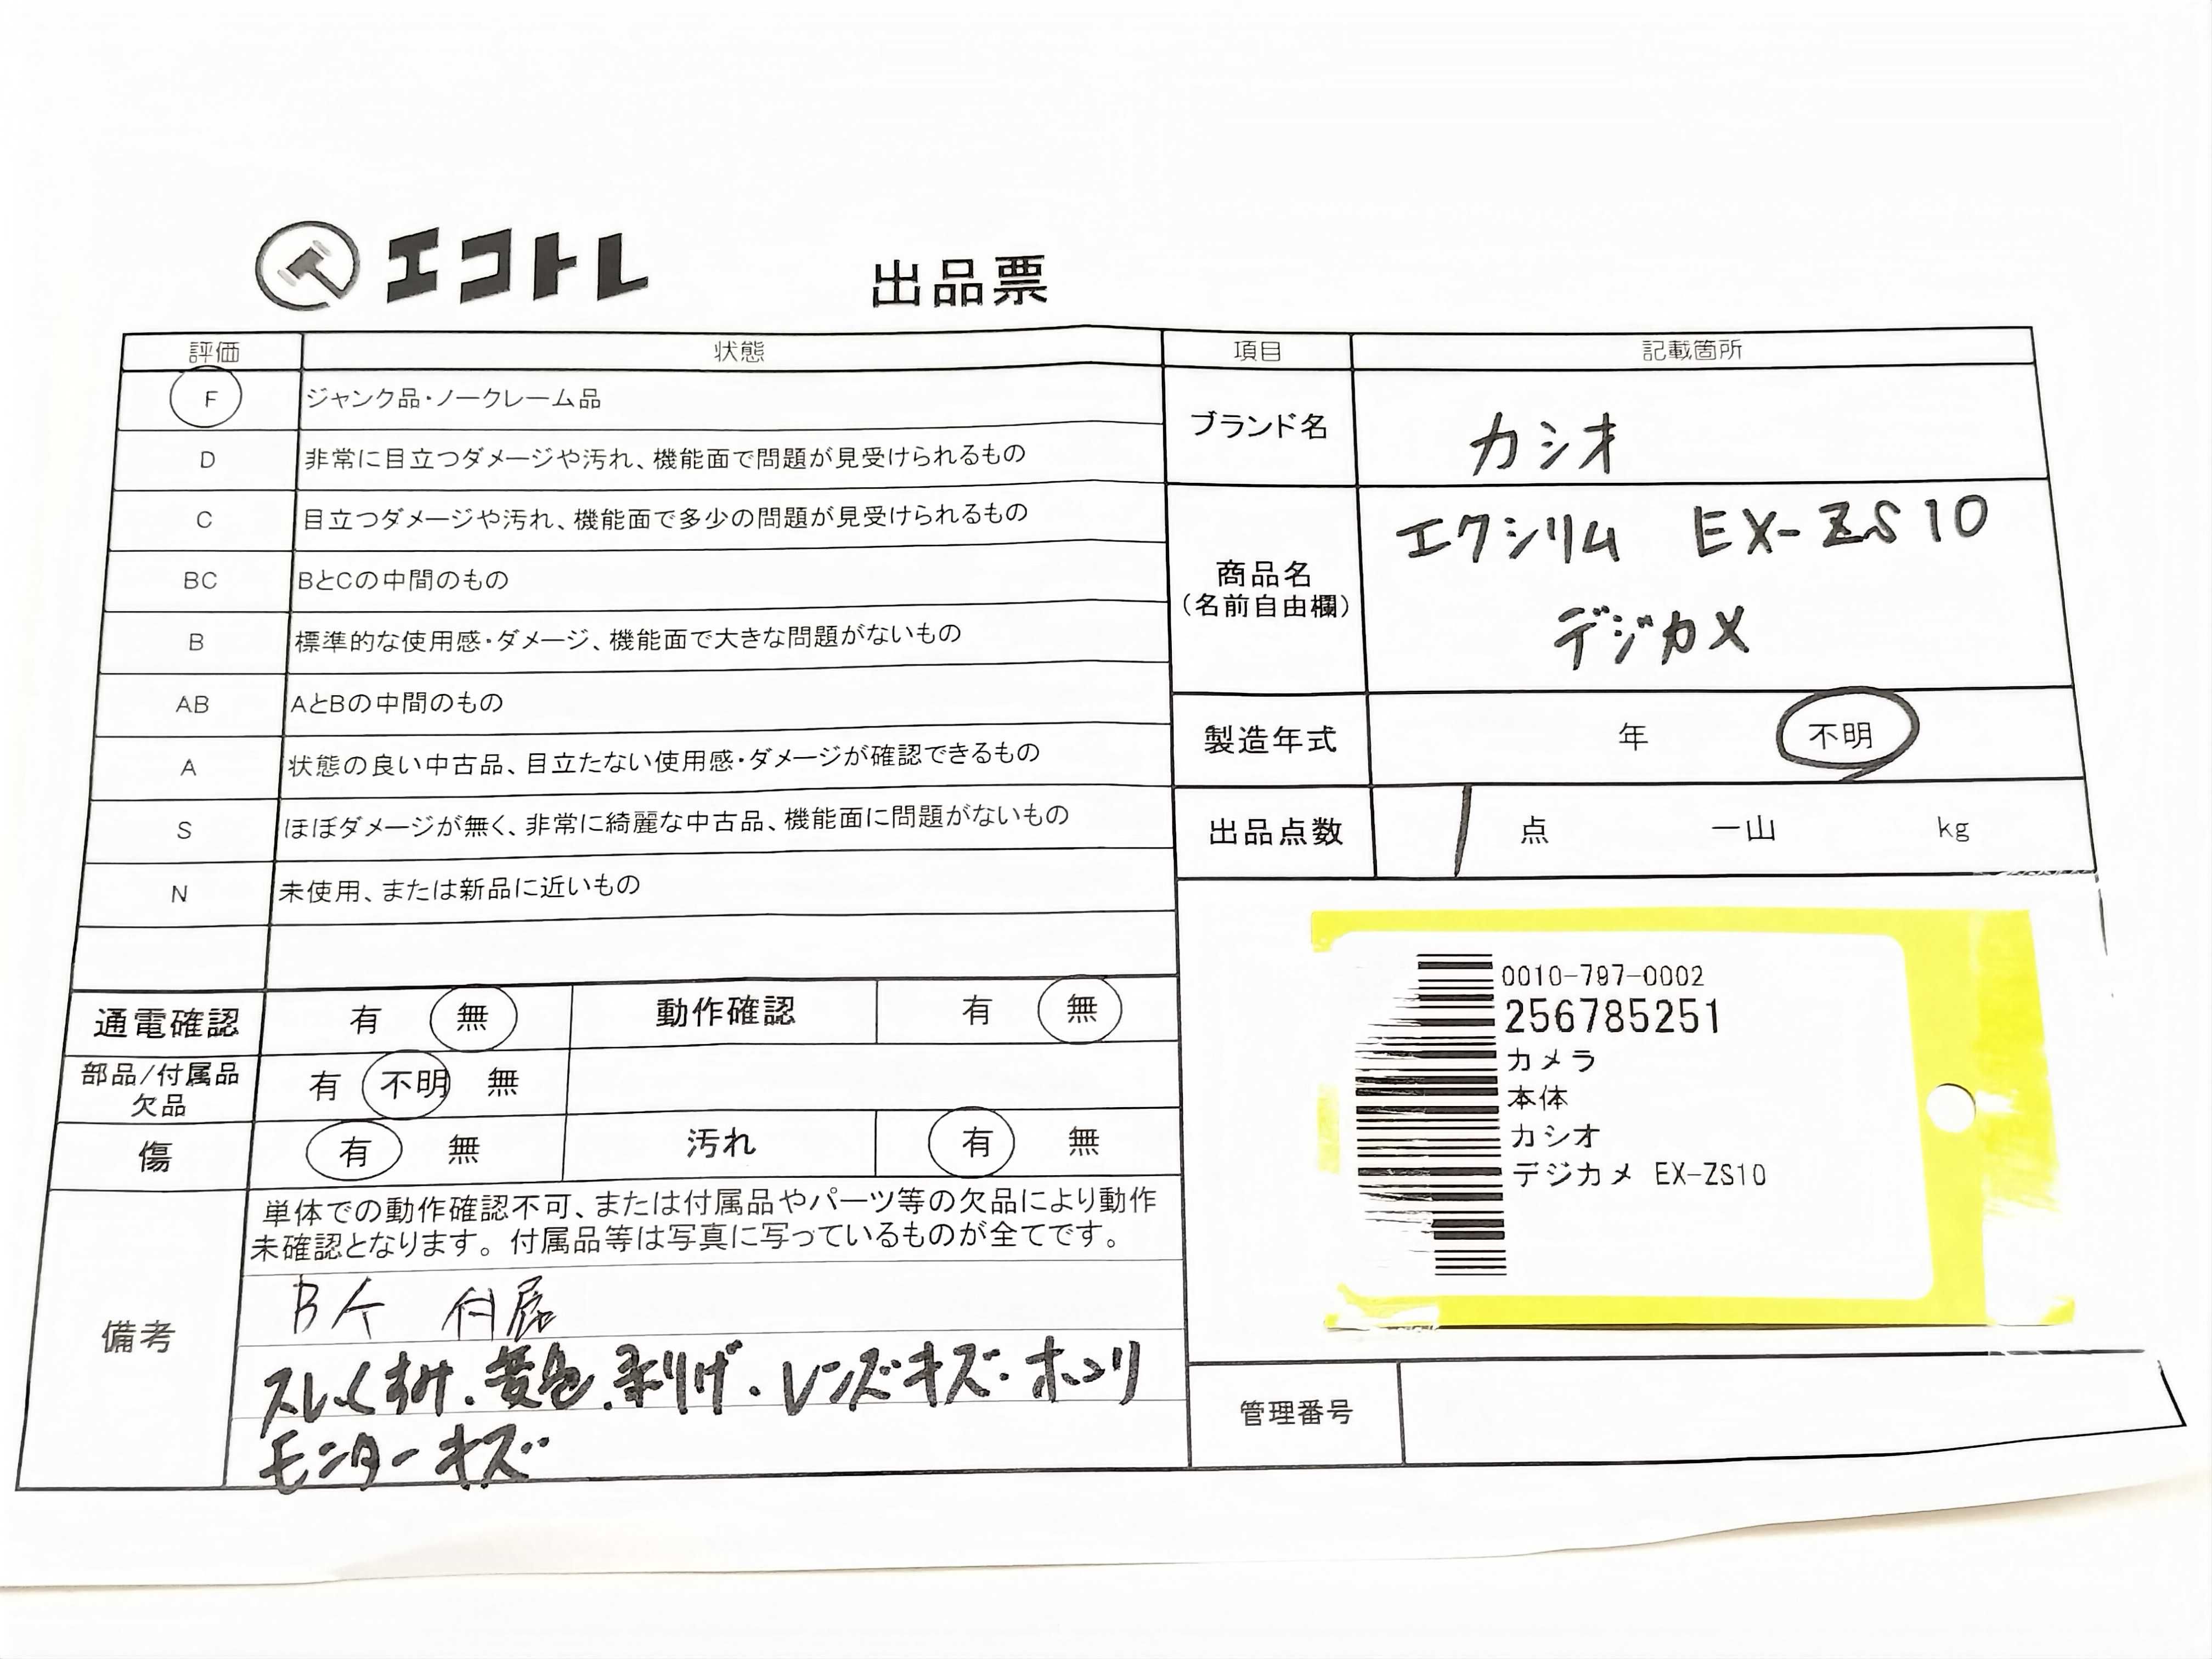 エコトレ
出品票
評価 状態
F ジャンク品・ノークレーム品
D 非常に目立つダメージや汚れ、機能面で問題が見受けられるもの
C 目立つダメージや汚れ、機能面で多少の問題が見受けられるもの
BC BとCの中間のもの
B 標準的な使用感・ダメージ、機能面で大きな問題がないもの
AB AとBの中間のもの
A 状態の良い中古品、目立たない使用感・ダメージが確認できるもの
S ほぼダメージが無く、非常に綺麗な中古品、機能面に問題がないもの
N 未使用、または新品に近いもの
通電確認 有 無 動作確認 有 無
部品/付属品 有 不明 無
欠品
傷 有 無 汚れ 有 無
備考
単体での動作確認不可、または付属品やパーツ等の欠品により動作
未確認となります。付属品等は写真に写っているものが全てです。
付属
レンズキズ・ホコリ
モニターキズ
項目 記載箇所
ブランド名 カシオ
商品名 エクシリム EX-ZS10
(名前自由欄) デジカメ
製造年式 年 不明
出品点数 1 点 一山 kg
0010-797-0002
256785251
カメラ
本体
カシオ
デジカメ EX-ZS10
管理番号